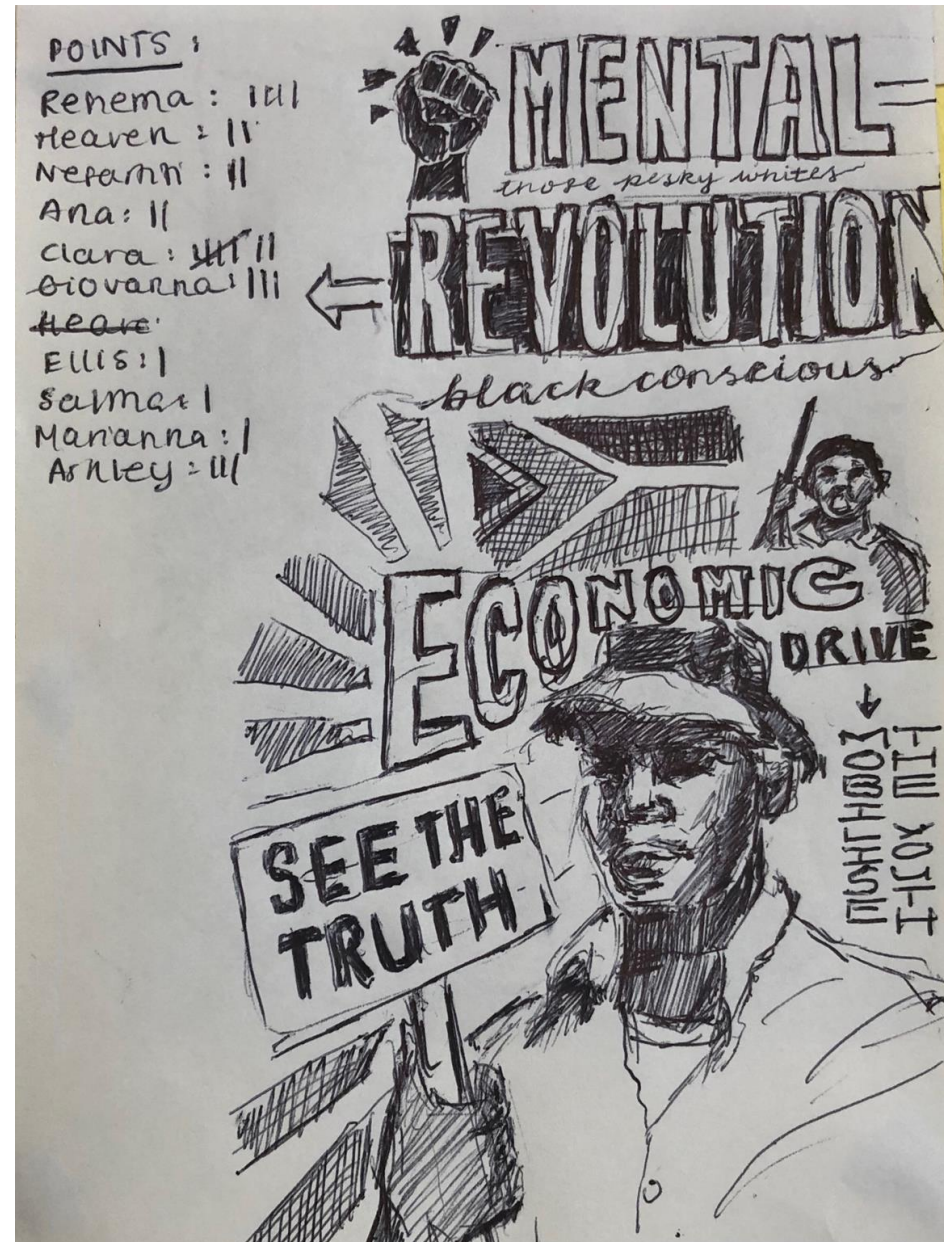 POINTS :
Renema : ||||
Heaven : ||
Ana : ||
Clara : 卌 ||
Giovanna : |||
Heave
Ellis : |
Salma : |
Marianna : |
Ashley : |||
MENTAL
those pesky whites
REVOLUTION
black conscious
ECONOMIC
DRIVE
MOBILISE
THE YOUTH
SEE THE
TRUTH